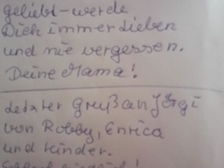 geliebt - werde
Dich immer lieben
und nie vergessen.
Deine Mama!
Letzter Gruß an Jörgi
von Robby, Enrica
und Kinder.